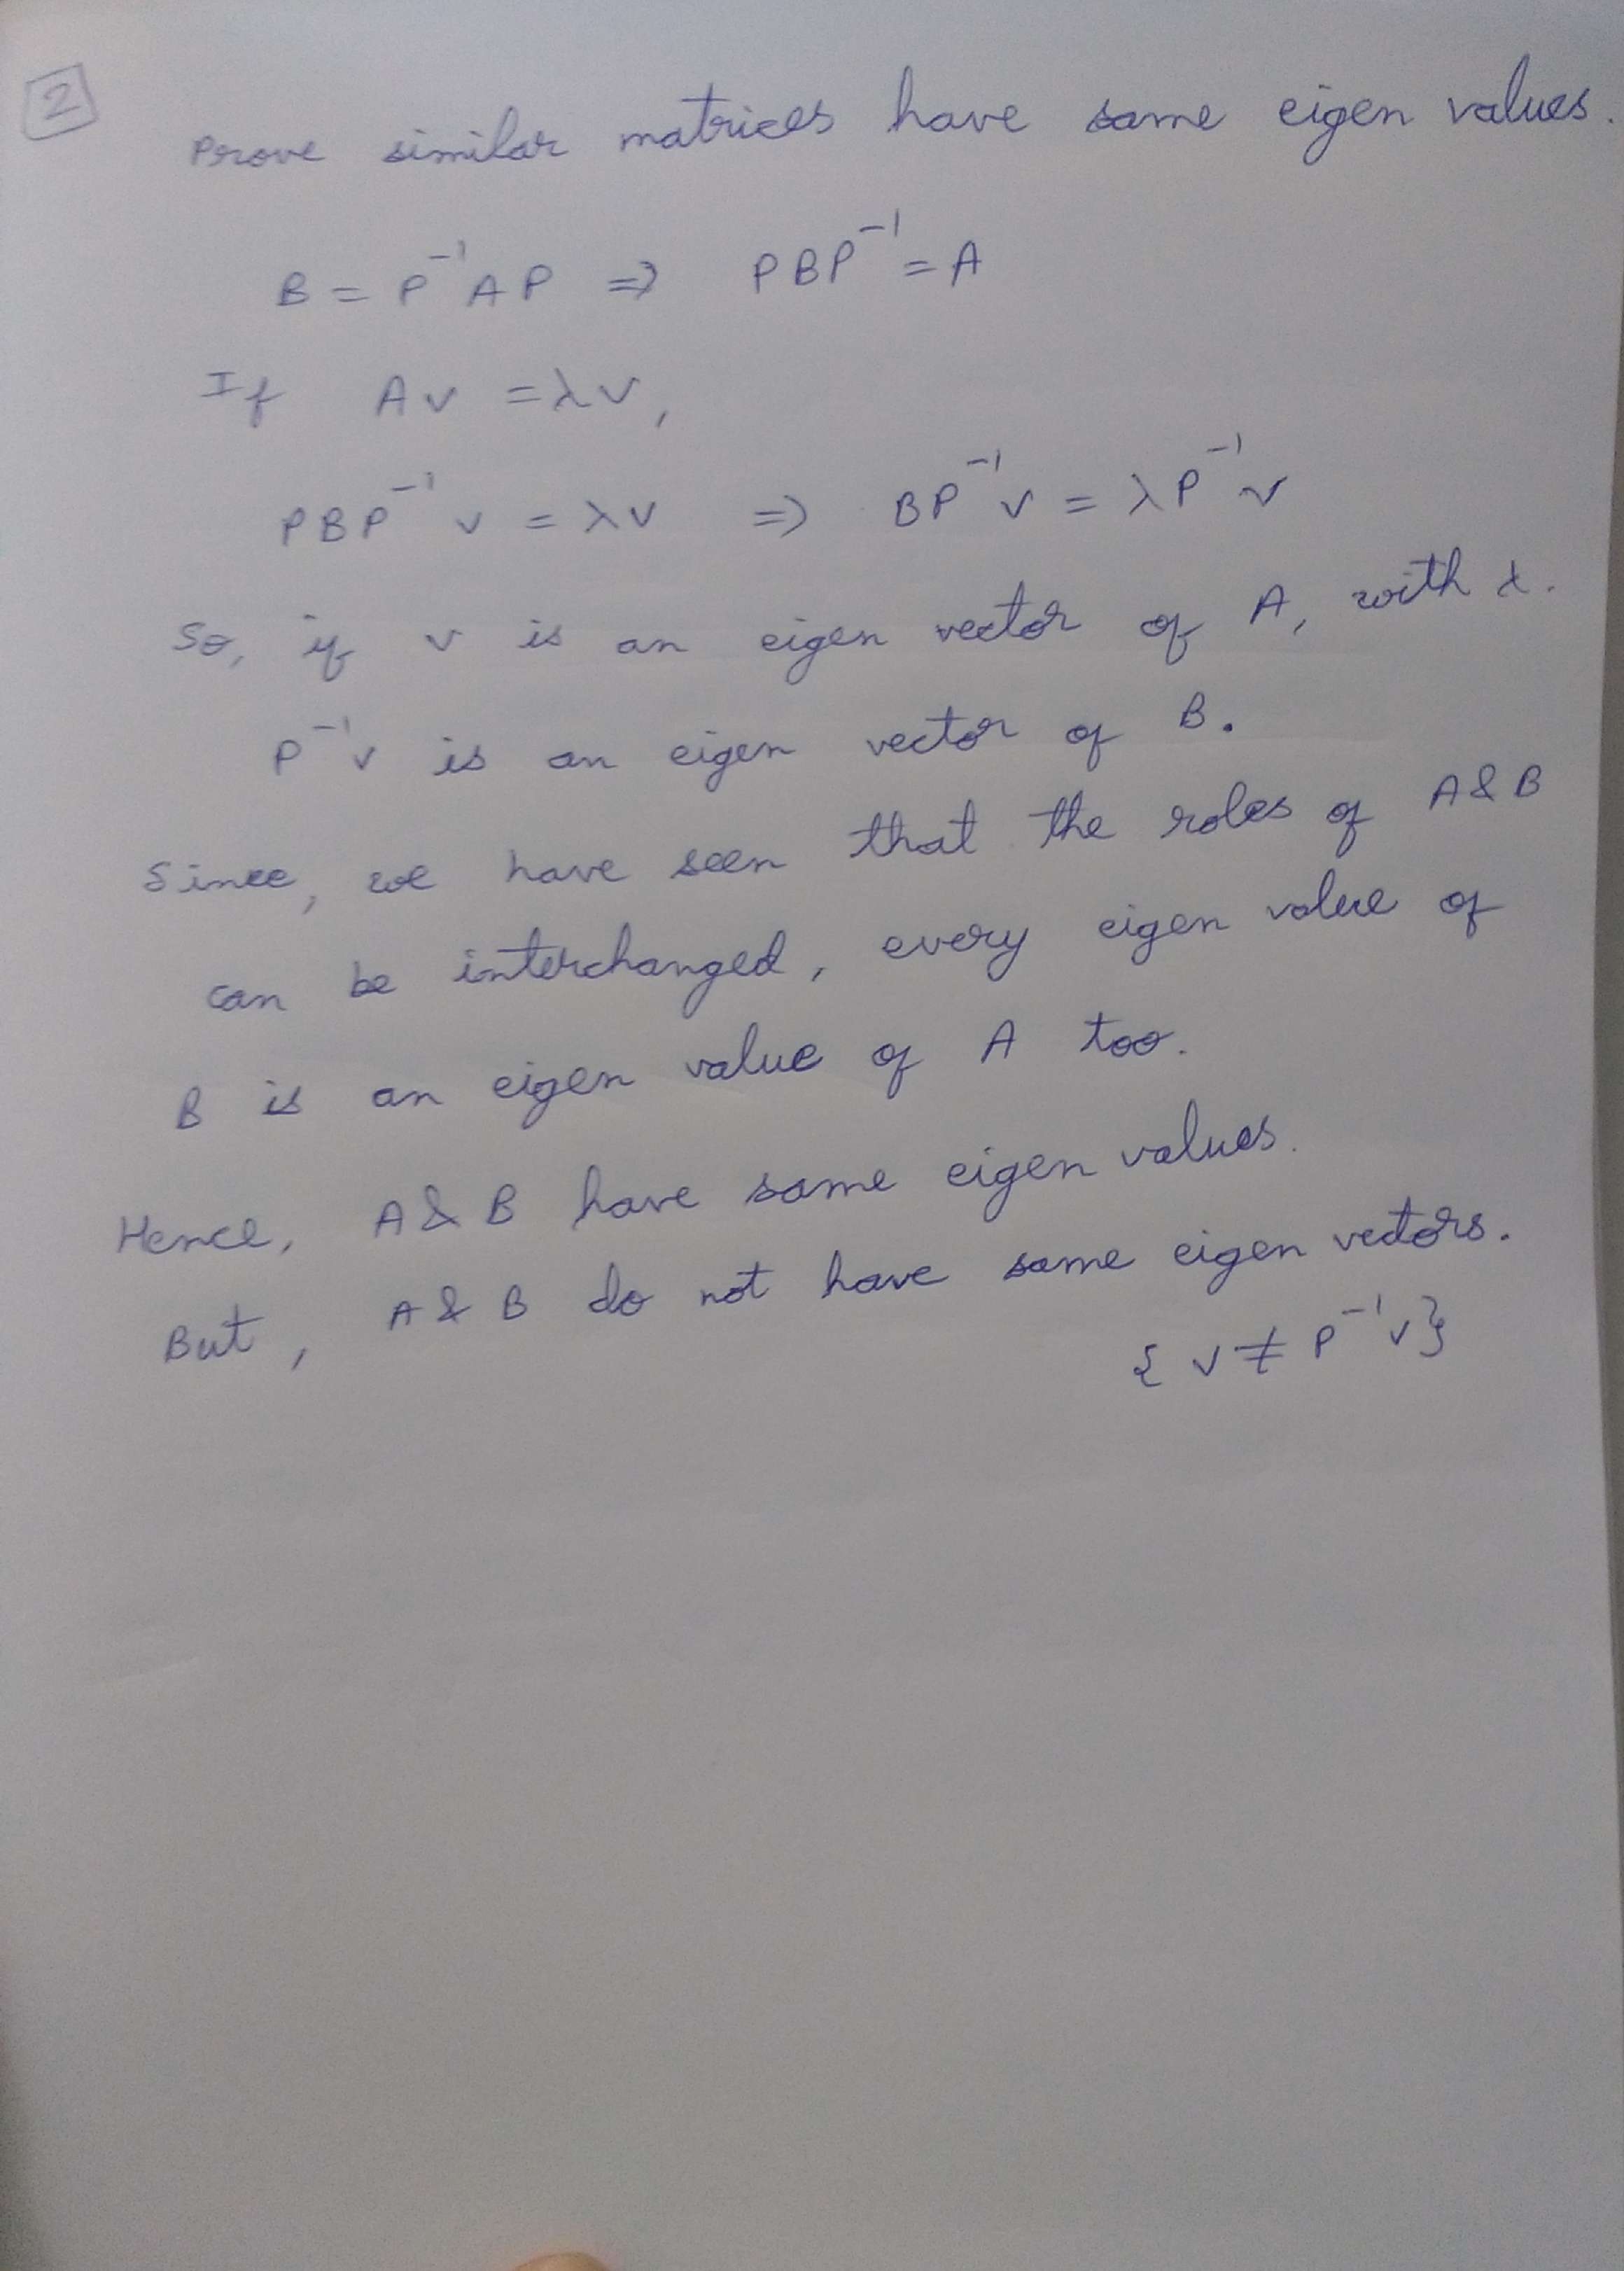 2
Prove similar matrices have same eigen values.
B = P⁻¹AP ⇒ PBP⁻¹ = A
If Av = λv,
PBP⁻¹v = λv ⇒ BP⁻¹v = λP⁻¹v
So, if v is an eigen vector of A, with λ.
P⁻¹v is an eigen vector of B.
Since, we have seen that the roles of A & B
can be interchanged, every eigen value of
B is an eigen value of A too.
Hence, A & B have same eigen values.
But, A & B do not have same eigen vectors.
{ v ≠ P⁻¹v }